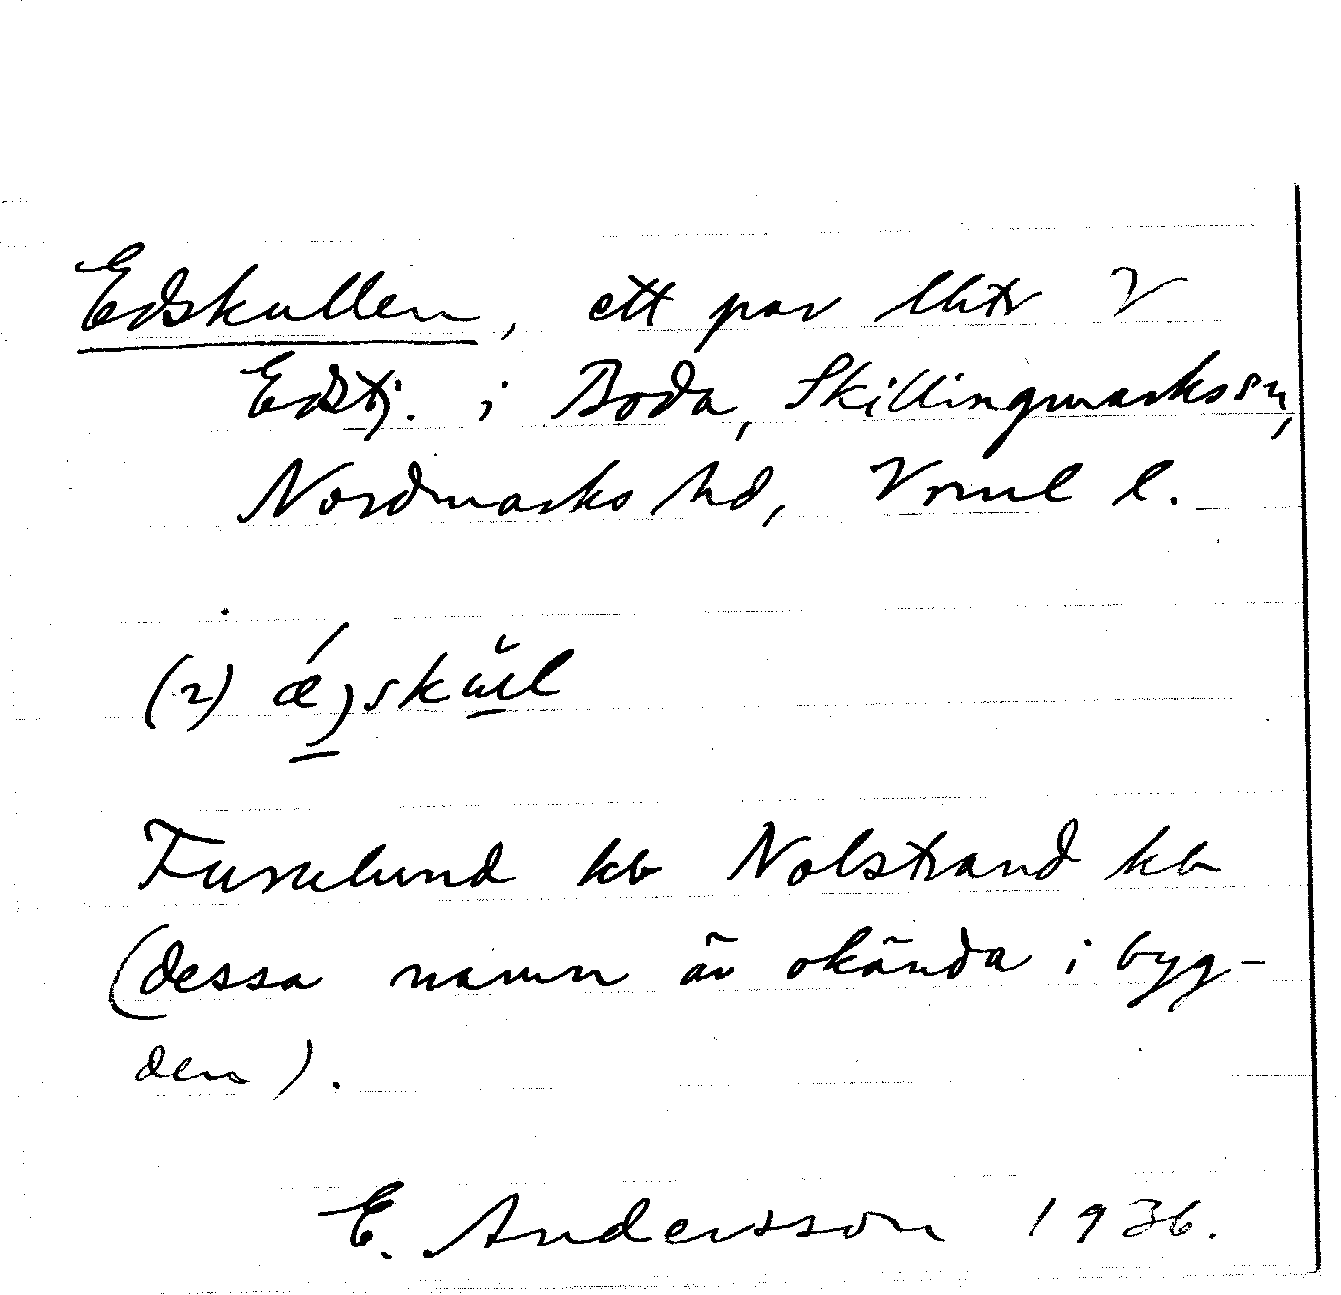 Edskullen, ett par lhtr V
Edstj. i Boda, Skillingmarks sn,
Nordmarks hd, Vrml l.
(2)
Furulund kb Nolstrand kb
(dessa namn är okända i byg-
den).
E. Andersson 1936.